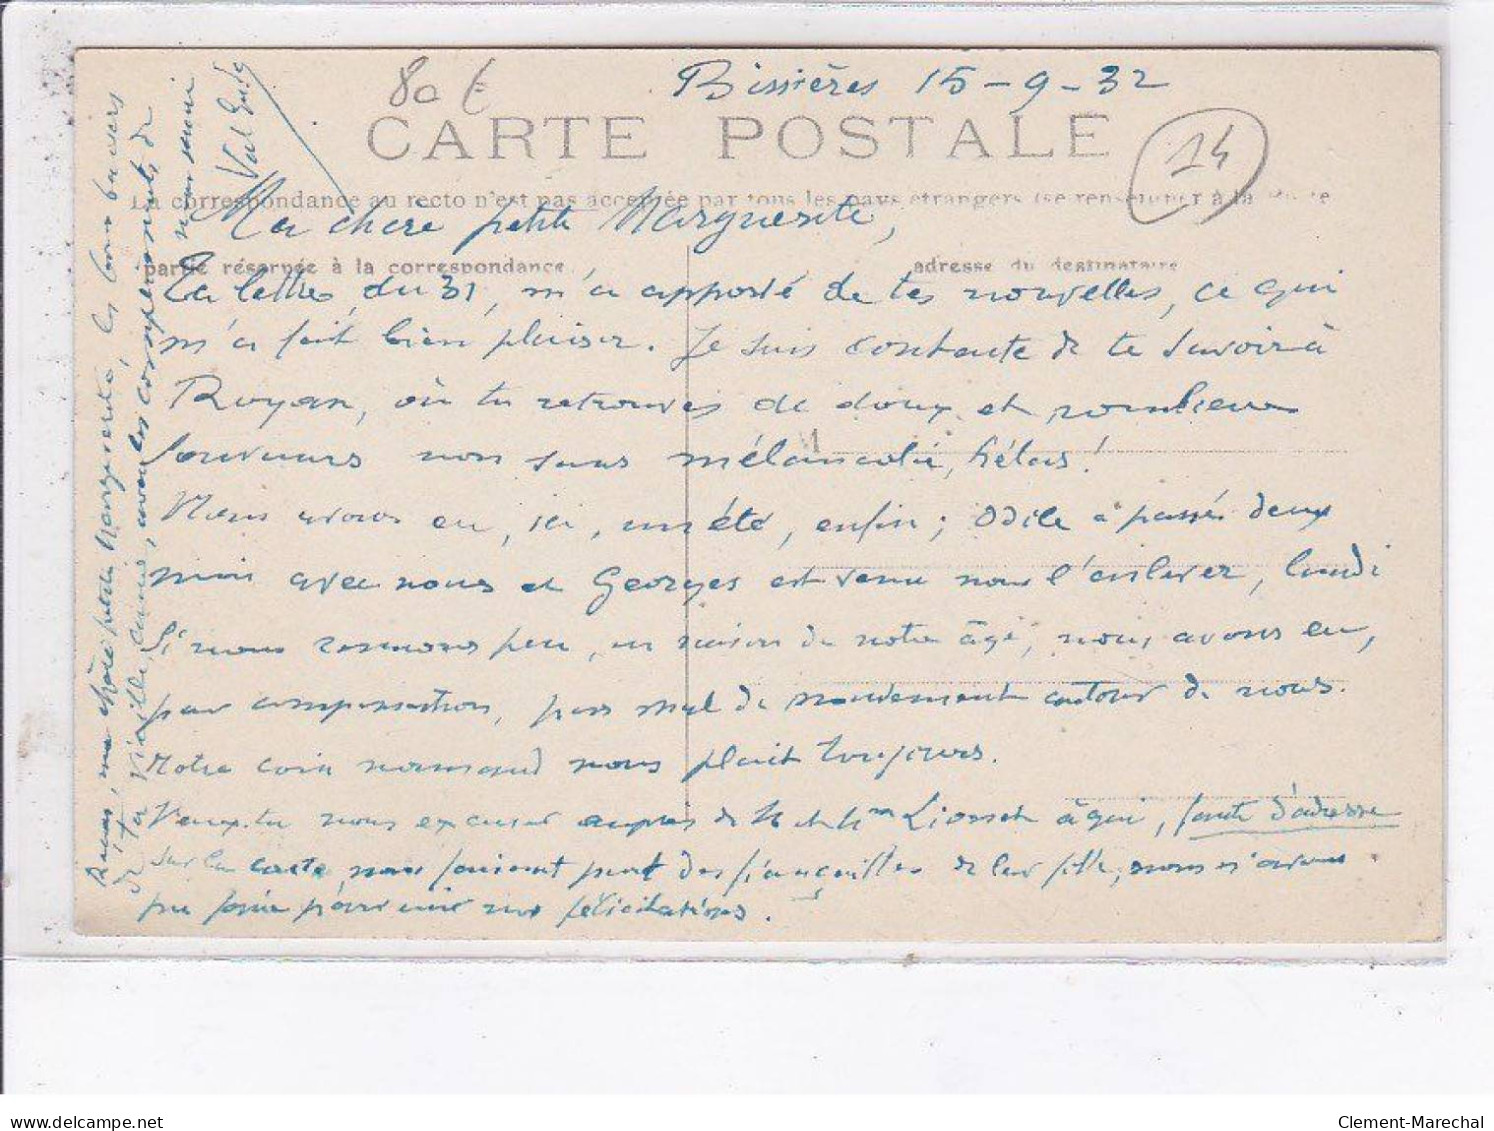 80 €
Bissières 15-9-32
CARTE POSTALE
14
La correspondance au recto n'est pas acceptée par tous les pays étrangers (se renseigner à la Poste
Ma chère petite Marguerite,
partie réservée à la correspondance
adresse du destinataire
Ta lettre, du 31, m'a apporté de tes nouvelles, ce qui
m'a fait bien plaisir. Je suis contente de te savoir à
Royan, où tu retrouves de doux et nombreux
souvenirs non sans mélancolie, hélas!
Nous avons eu, ici, un été, enfin; Odile a passé deux
mois avec nous et Georges est venu nous l'enlever, lundi
Si nous remuons peu, en raison de notre âge, nous avons eu,
par compensation, pas mal de mouvement autour de nous.
Notre coin normand nous plait toujours.
Veux-tu nous excuser auprès de M et Mme à qui, faute d'adresse
sur la carte, nous faisant part des fiançailles de leur fille, nous n'avons
pu faire parvenir nos félicitations.
Reçois, ma chère petite Marguerite, les bons baisers
de ta vieille amie, avec les compliments de
mon mari